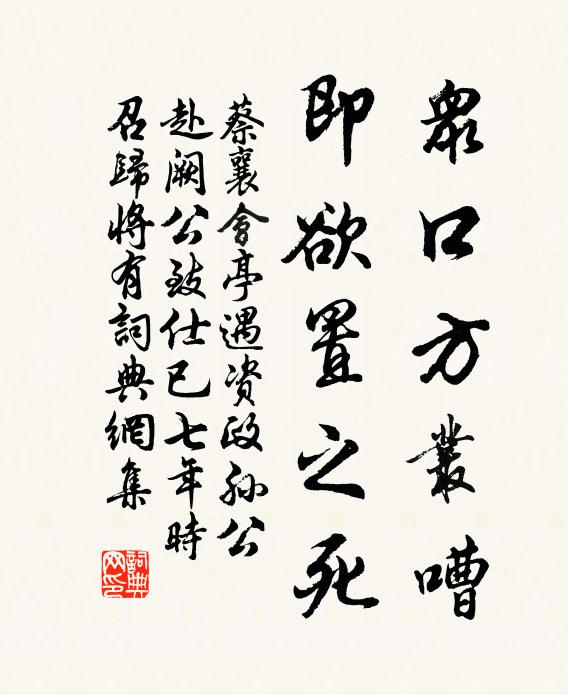 衆口方叢嘈
即欲置之死
蔡襄會亭遇資政孫公
赴闕公致仕已七年時
召歸將有詞典網集
詞典
网印